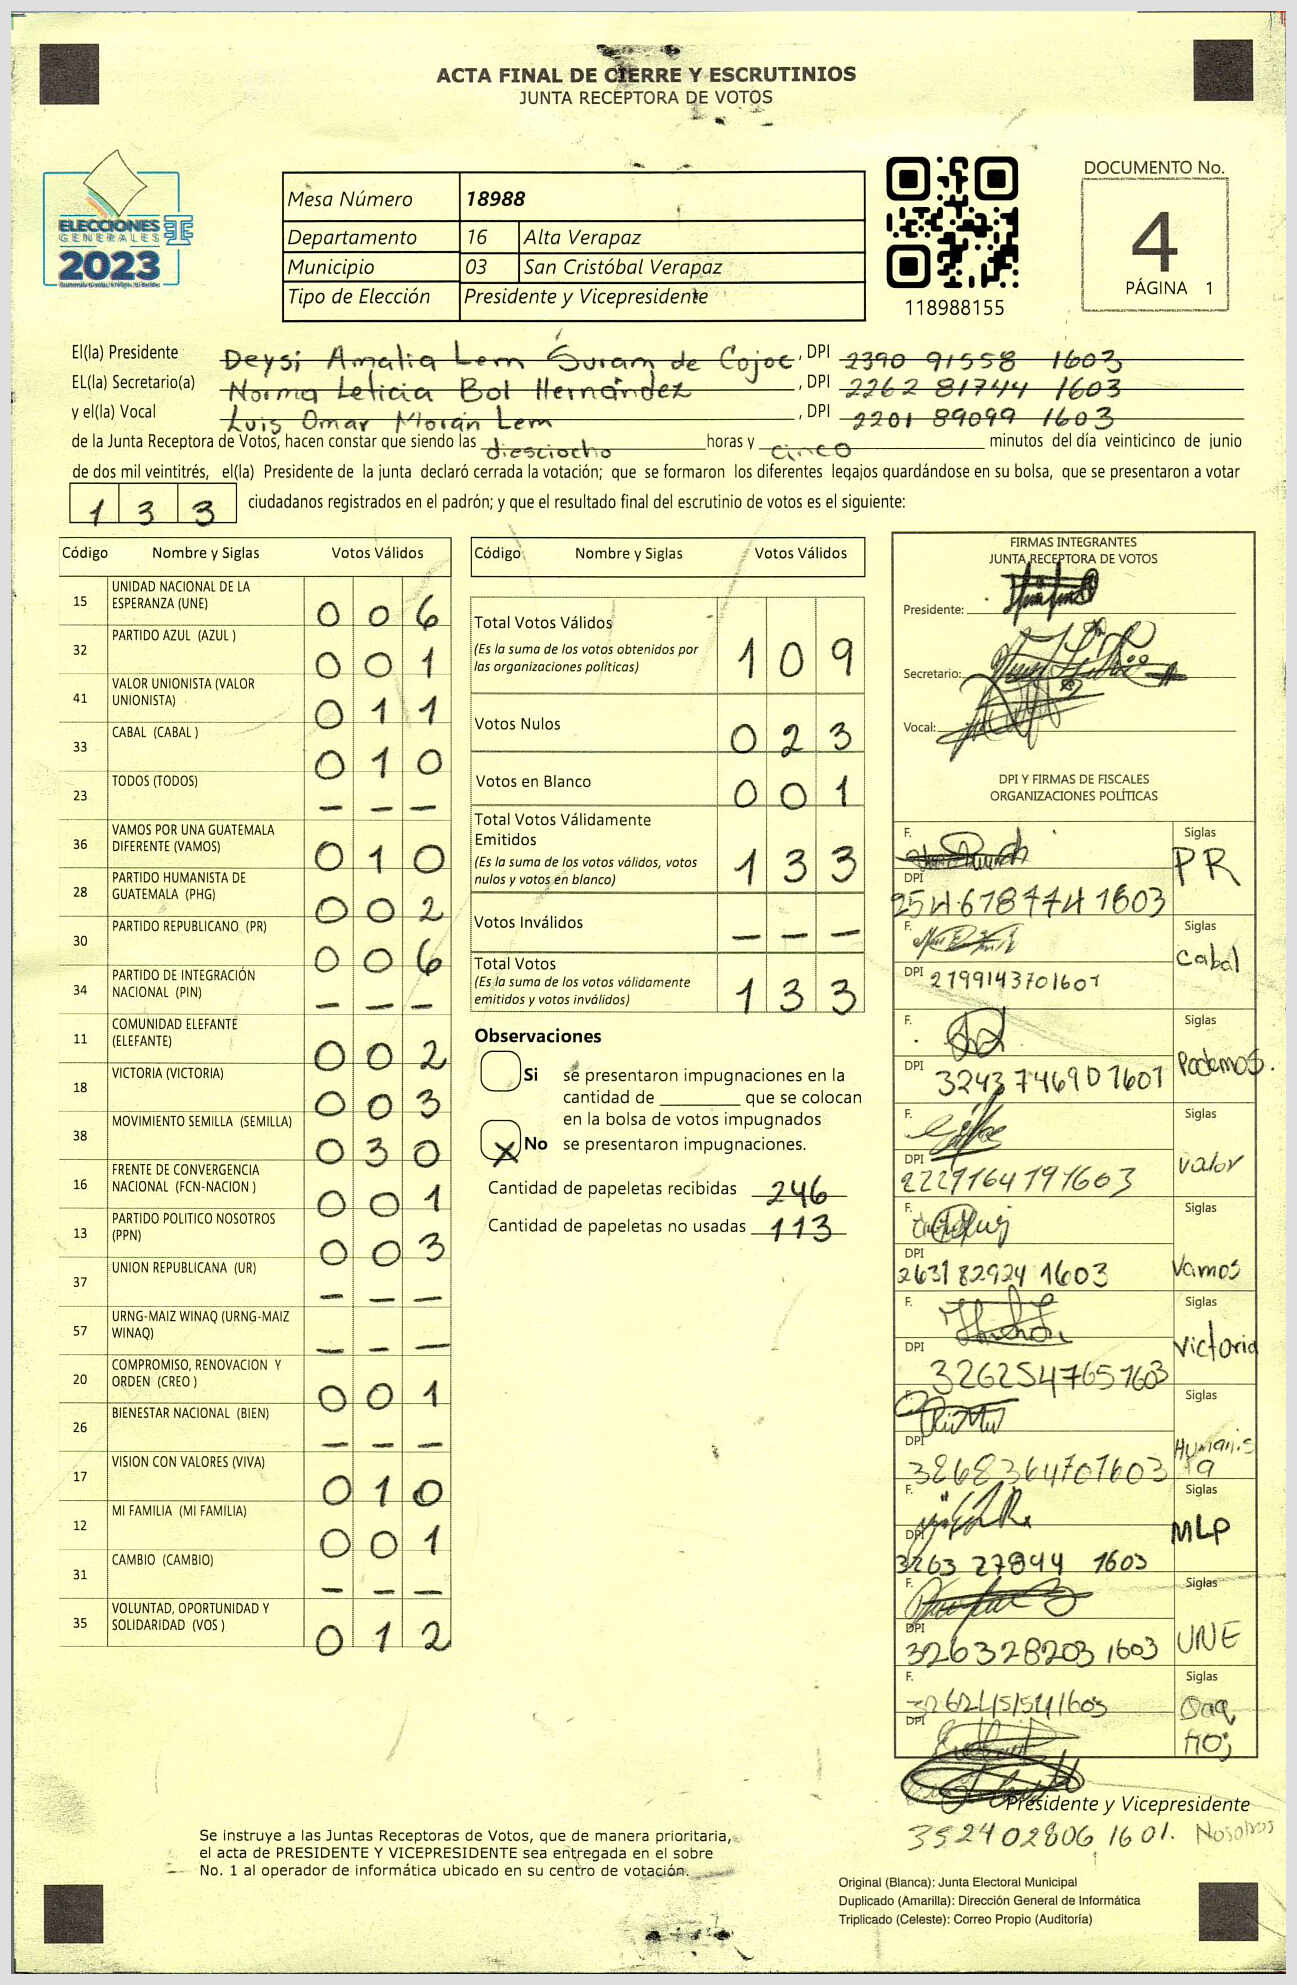 ACTA FINAL DE CIERRE Y ESCRUTINIOS
JUNTA RECEPTORA DE VOTOS
ELECCIONES
GENERALES
2023
Mesa Número 18988
Departamento 16 Alta Verapaz
Municipio 03 San Cristóbal Verapaz
Tipo de Elección Presidente y Vicepresidente
118988155
DOCUMENTO No.
4
PÁGINA 1
El(la) Presidente Deysi Amalia Lem Suram de Cojoc, DPI 2390 91558 1603
EL(la) Secretario(a) Norma Leticia Bol Hernández, DPI 2262 81744 1603
y el(la) Vocal Luis Omar Morán Lem, DPI 2201 89099 1603
de la Junta Receptora de Votos, hacen constar que siendo las diesciocho horas y cinco minutos del día veinticinco de junio
de dos mil veintitrés, el(la) Presidente de la junta declaró cerrada la votación; que se formaron los diferentes legajos guardándose en su bolsa, que se presentaron a votar
133 ciudadanos registrados en el padrón; y que el resultado final del escrutinio de votos es el siguiente:
Código Nombre y Siglas Votos Válidos
15 UNIDAD NACIONAL DE LA ESPERANZA (UNE) 006
32 PARTIDO AZUL (AZUL ) 001
41 VALOR UNIONISTA (VALOR UNIONISTA) 011
33 CABAL (CABAL ) 010
23 TODOS (TODOS) - - -
36 VAMOS POR UNA GUATEMALA DIFERENTE (VAMOS) 010
28 PARTIDO HUMANISTA DE GUATEMALA (PHG) 002
30 PARTIDO REPUBLICANO (PR) 006
34 PARTIDO DE INTEGRACIÓN NACIONAL (PIN) - - -
11 COMUNIDAD ELEFANTE (ELEFANTE) 002
18 VICTORIA (VICTORIA) 003
38 MOVIMIENTO SEMILLA (SEMILLA) 030
16 FRENTE DE CONVERGENCIA NACIONAL (FCN-NACION ) 001
13 PARTIDO POLITICO NOSOTROS (PPN) 003
37 UNION REPUBLICANA (UR) - - -
57 URNG-MAIZ WINAQ (URNG-MAIZ WINAQ) - - -
20 COMPROMISO, RENOVACION Y ORDEN (CREO ) 001
26 BIENESTAR NACIONAL (BIEN) - - -
17 VISION CON VALORES (VIVA) 010
12 MI FAMILIA (MI FAMILIA) 001
31 CAMBIO (CAMBIO) - - -
35 VOLUNTAD, OPORTUNIDAD Y SOLIDARIDAD (VOS ) 012
Código Nombre y Siglas Votos Válidos
Total Votos Válidos 109
(Es la suma de los votos obtenidos por
las organizaciones políticas)
Votos Nulos 023
Votos en Blanco 001
Total Votos Válidamente
Emitidos 133
(Es la suma de los votos válidos, votos
nulos y votos en blanco)
Votos Inválidos - - -
Total Votos 133
(Es la suma de los votos válidamente
emitidos y votos inválidos)
Observaciones
Si se presentaron impugnaciones en la
cantidad de ________ que se colocan
en la bolsa de votos impugnados
X No se presentaron impugnaciones.
Cantidad de papeletas recibidas 246
Cantidad de papeletas no usadas 113
FIRMAS INTEGRANTES
JUNTA RECEPTORA DE VOTOS
Presidente:
Secretario:
Vocal:
DPI Y FIRMAS DE FISCALES
ORGANIZACIONES POLÍTICAS
F. Siglas PR
DPI 254618774 1603
F. Siglas Cabal
DPI 2799143701601
F. Siglas Podemos.
DPI 3243746901601
F. Siglas Valor
DPI 2229164191603
F. Siglas Vamos
DPI 263182924 1603
F. Siglas Victoria
DPI 3262547651603
F. Siglas Humanista
DPI 3268364701603
F. Siglas MLP
DPI 3263 27844 1603
F. Siglas UNE
DPI 326328203 1603
F. Siglas
DPI
Presidente y Vicepresidente
352402806 1601. Nosotros
Se instruye a las Juntas Receptoras de Votos, que de manera prioritaria,
el acta de PRESIDENTE Y VICEPRESIDENTE sea entregada en el sobre
No. 1 al operador de informática ubicado en su centro de votación.
Original (Blanca): Junta Electoral Municipal
Duplicado (Amarilla): Dirección General de Informática
Triplicado (Celeste): Correo Propio (Auditoría)